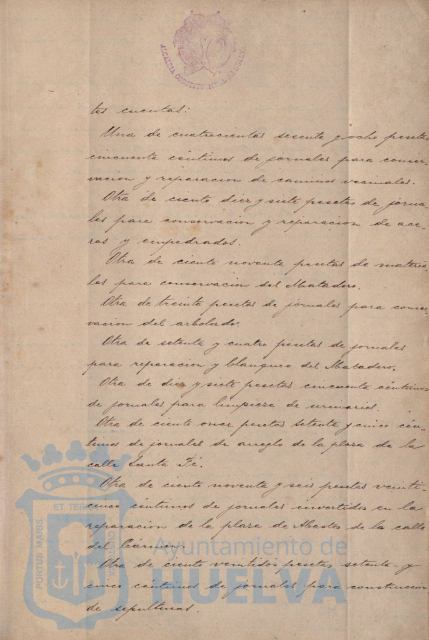 tes cuentas:
Una de cuatrocientas sesenta y ocho pesetas
cincuenta céntimos de jornales para conser-
vacion y reparacion de caminos vecinales.
Otra de ciento diez y siete pesetas de jorna-
les para conservacion y reparacion de ace-
ras y empedrados.
Otra de ciento noventa pesetas de materia-
les para conservacion del Matadero.
Otra de treinta pesetas de jornales para conser-
vacion del arbolado.
Otra de setenta y cuatro pesetas de jornales
para reparacion y blanqueo del Matadero.
Otra de diez y siete pesetas cincuenta céntimos
de jornales para limpieza de urinarios.
Otra de ciento once pesetas setenta y cinco cén-
timos de jornales de arreglo de la plaza de la
calle Santa Fé.
Otra de ciento noventa y seis pesetas veinti-
cinco céntimos de jornales invertidos en la
reparacion de la plaza de Abastos de la calle
del Cármen.
Otra de ciento veintidos pesetas setenta y
cinco céntimos de jornales para construccion
de sepulturas.
PORTUS MARIS ET TERRAE
Ayuntamiento de
HUELVA